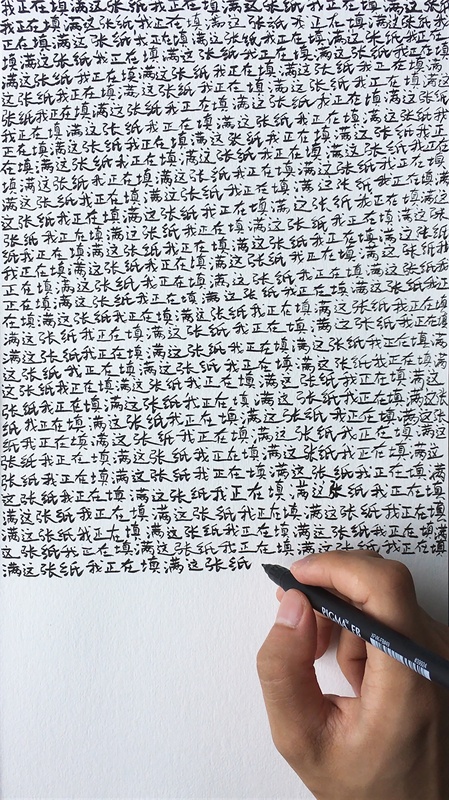 我正在填满这张纸我正在填满这张纸我正在填满这张纸
我正在填满这张纸我正在填满这张纸我正在填满这张纸我
正在填满这张纸我正在填满这张纸我正在填满这张纸我正在
填满这张纸我正在填满这张纸我正在填满这张纸我正在填
满这张纸我正在填满这张纸我正在填满这张纸我正在填满
这张纸我正在填满这张纸我正在填满这张纸我正在填满这
张纸我正在填满这张纸我正在填满这张纸我正在填满这张纸
我正在填满这张纸我正在填满这张纸我正在填满这张纸我
正在填满这张纸我正在填满这张纸我正在填满这张纸我正
在填满这张纸我正在填满这张纸我正在填满这张纸我正在
填满这张纸我正在填满这张纸我正在填满这张纸我正在填
满这张纸我正在填满这张纸我正在填满这张纸我正在填满
这张纸我正在填满这张纸我正在填满这张纸我正在填满这
张纸我正在填满这张纸我正在填满这张纸我正在填满这张
纸我正在填满这张纸我正在填满这张纸我正在填满这张纸
我正在填满这张纸我正在填满这张纸我正在填满这张纸我
正在填满这张纸我正在填满这张纸我正在填满这张纸我
正在填满这张纸我正在填满这张纸我正在填满这张纸我正
在填满这张纸我正在填满这张纸我正在填满这张纸我正在
填满这张纸我正在填满这张纸我正在填满这张纸我正在填
满这张纸我正在填满这张纸我正在填满这张纸我正在填满
这张纸我正在填满这张纸我正在填满这张纸我正在填满
这张纸我正在填满这张纸我正在填满这张纸我正在填满这
张纸我正在填满这张纸我正在填满这张纸我正在填满这张
纸我正在填满这张纸我正在填满这张纸我正在填满这张
纸我正在填满这张纸我正在填满这张纸我正在填满这
张纸我正在填满这张纸我正在填满这张纸我正在填满这张
纸我正在填满这张纸我正在填满这张纸我正在填满
这张纸我正在填满这张纸我正在填满这张纸我正在填
满这张纸我正在填满这张纸我正在填满这张纸我正在填
满这张纸我正在填满这张纸我正在填满这张纸我正在填满
这张纸我正在填满这张纸我正在填满这张纸我正在填
满这张纸我正在填满这张纸
PIGMA FB